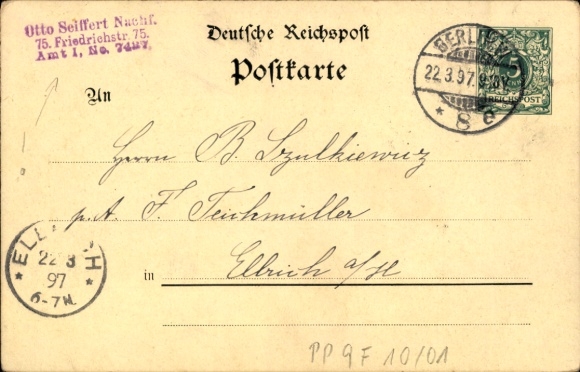 Otto Seiffert Nachf.
75. Friedrichstr. 75.
Amt I, No. 7427.
Deutsche Reichspost
Postkarte
BERLIN W
22.3.97.
* 8 e
5
REICHSPOST
An
Herrn B. Szulkiewicz
p. A. F. Teichmüller
in Ellrich a/H
ELL CH
22 3
97
6-7 N.
PP 9 F 10/01